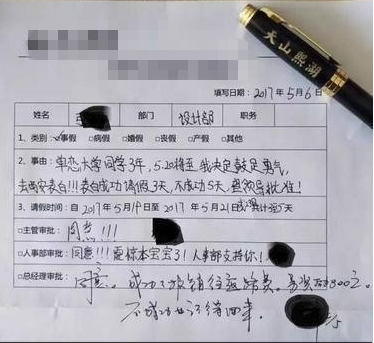 天山熙湖
填写日期：2017年5月6
姓名 部门 设计部 职务
1、类别：☑事假 □病假 □婚假 □丧假 □产假 □其他
2、事由：单恋大学同学3年，5.20将至 我决定鼓足勇气，
去西安表白!!!表白成功请假3天，不成功5天，恳领导批准！
3、请假时间：自2017年5月19日至2017年5月21日 共计 天
□主管审批：同意!!!
□人事部审批：同意!!!震惊本宝宝了！人事部支持你！
□总经理审批：同意。成功了报销往返路费。
不成功